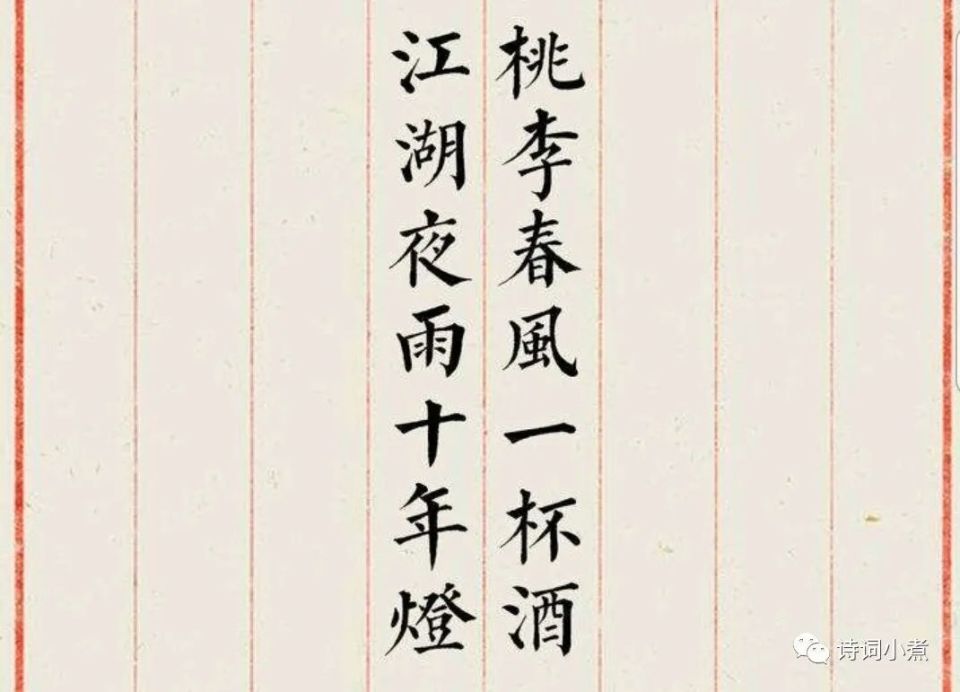 桃李春風一杯酒
江湖夜雨十年燈
诗词小煮